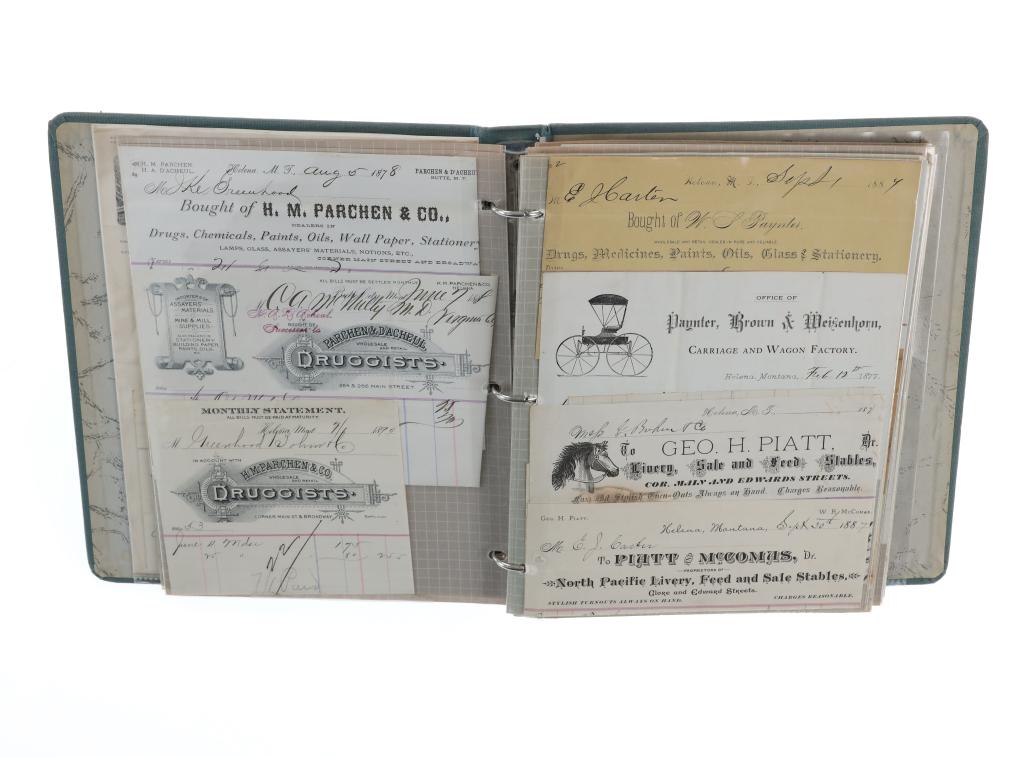 H. M. PARCHEN.
H. A. D'ACHEUL.
Helena M. T. Aug 5 1878
PARCHEN & D'ACHEUL
BUTTE, M. T.
M Ike Greenhood
Bought of H. M. PARCHEN & CO.,
DEALERS IN
Drugs, Chemicals, Paints, Oils, Wall Paper, Stationery
LAMPS, GLASS, ASSAYERS' MATERIALS, NOTIONS, ETC.,
CORNER MAIN STREET AND BROADWAY
Terms
ALL BILLS MUST BE SETTLED MONTHLY
H. M. PARCHEN & CO.
HELENA
IMPORTERS OF
ASSAYERS' MATERIALS
MINE & MILL
SUPPLIES
STATIONERY
BUILDING PAPER
PAINTS, OILS,
June 7
M.D. Virginia City
BOUGHT OF
Successor to
PARCHEN & D'ACHEUL
WHOLESALE
AND RETAIL
DRUGGISTS
254 & 256 MAIN STREET.
MONTHLY STATEMENT.
ALL BILLS MUST BE PAID AT MATURITY.
Helena, Mont 7/1 1895
M Greenhood Bohm & Co
IN ACCOUNT WITH
H. M. PARCHEN & CO.
WHOLESALE
AND RETAIL
DRUGGISTS
CORNER MAIN ST & BROADWAY
June
Paid
Helena, M. T., Sept 1 1887
M E J Carter
Bought of W. S. Paynter,
WHOLESALE AND RETAIL DEALER IN PURE AND RELIABLE
Drugs, Medicines, Paints, Oils, Glass & Stationery,
OFFICE OF
Paynter, Brown & Weisenhorn,
CARRIAGE AND WAGON FACTORY.
Helena, Montana, Feb 12th 1877
Helena, M. T. 187
Mess & Co
To GEO. H. PIATT, Dr.
Livery, Sale and Feed Stables,
COR. MAIN AND EDWARDS STREETS.
Nice and Stylish Turn-Outs Always on Hand. Charges Reasonable.
GEO H. PIATT.
W. R. McCOMAS.
Helena, Montana, Sept 30th 1887
M E. J. Carter
To PIATT & McCOMAS, Dr.
PROPRIETORS OF
North Pacific Livery, Feed and Sale Stables,
Clore and Edward Streets.
STYLISH TURNOUTS ALWAYS ON HAND.
CHARGES REASONABLE.